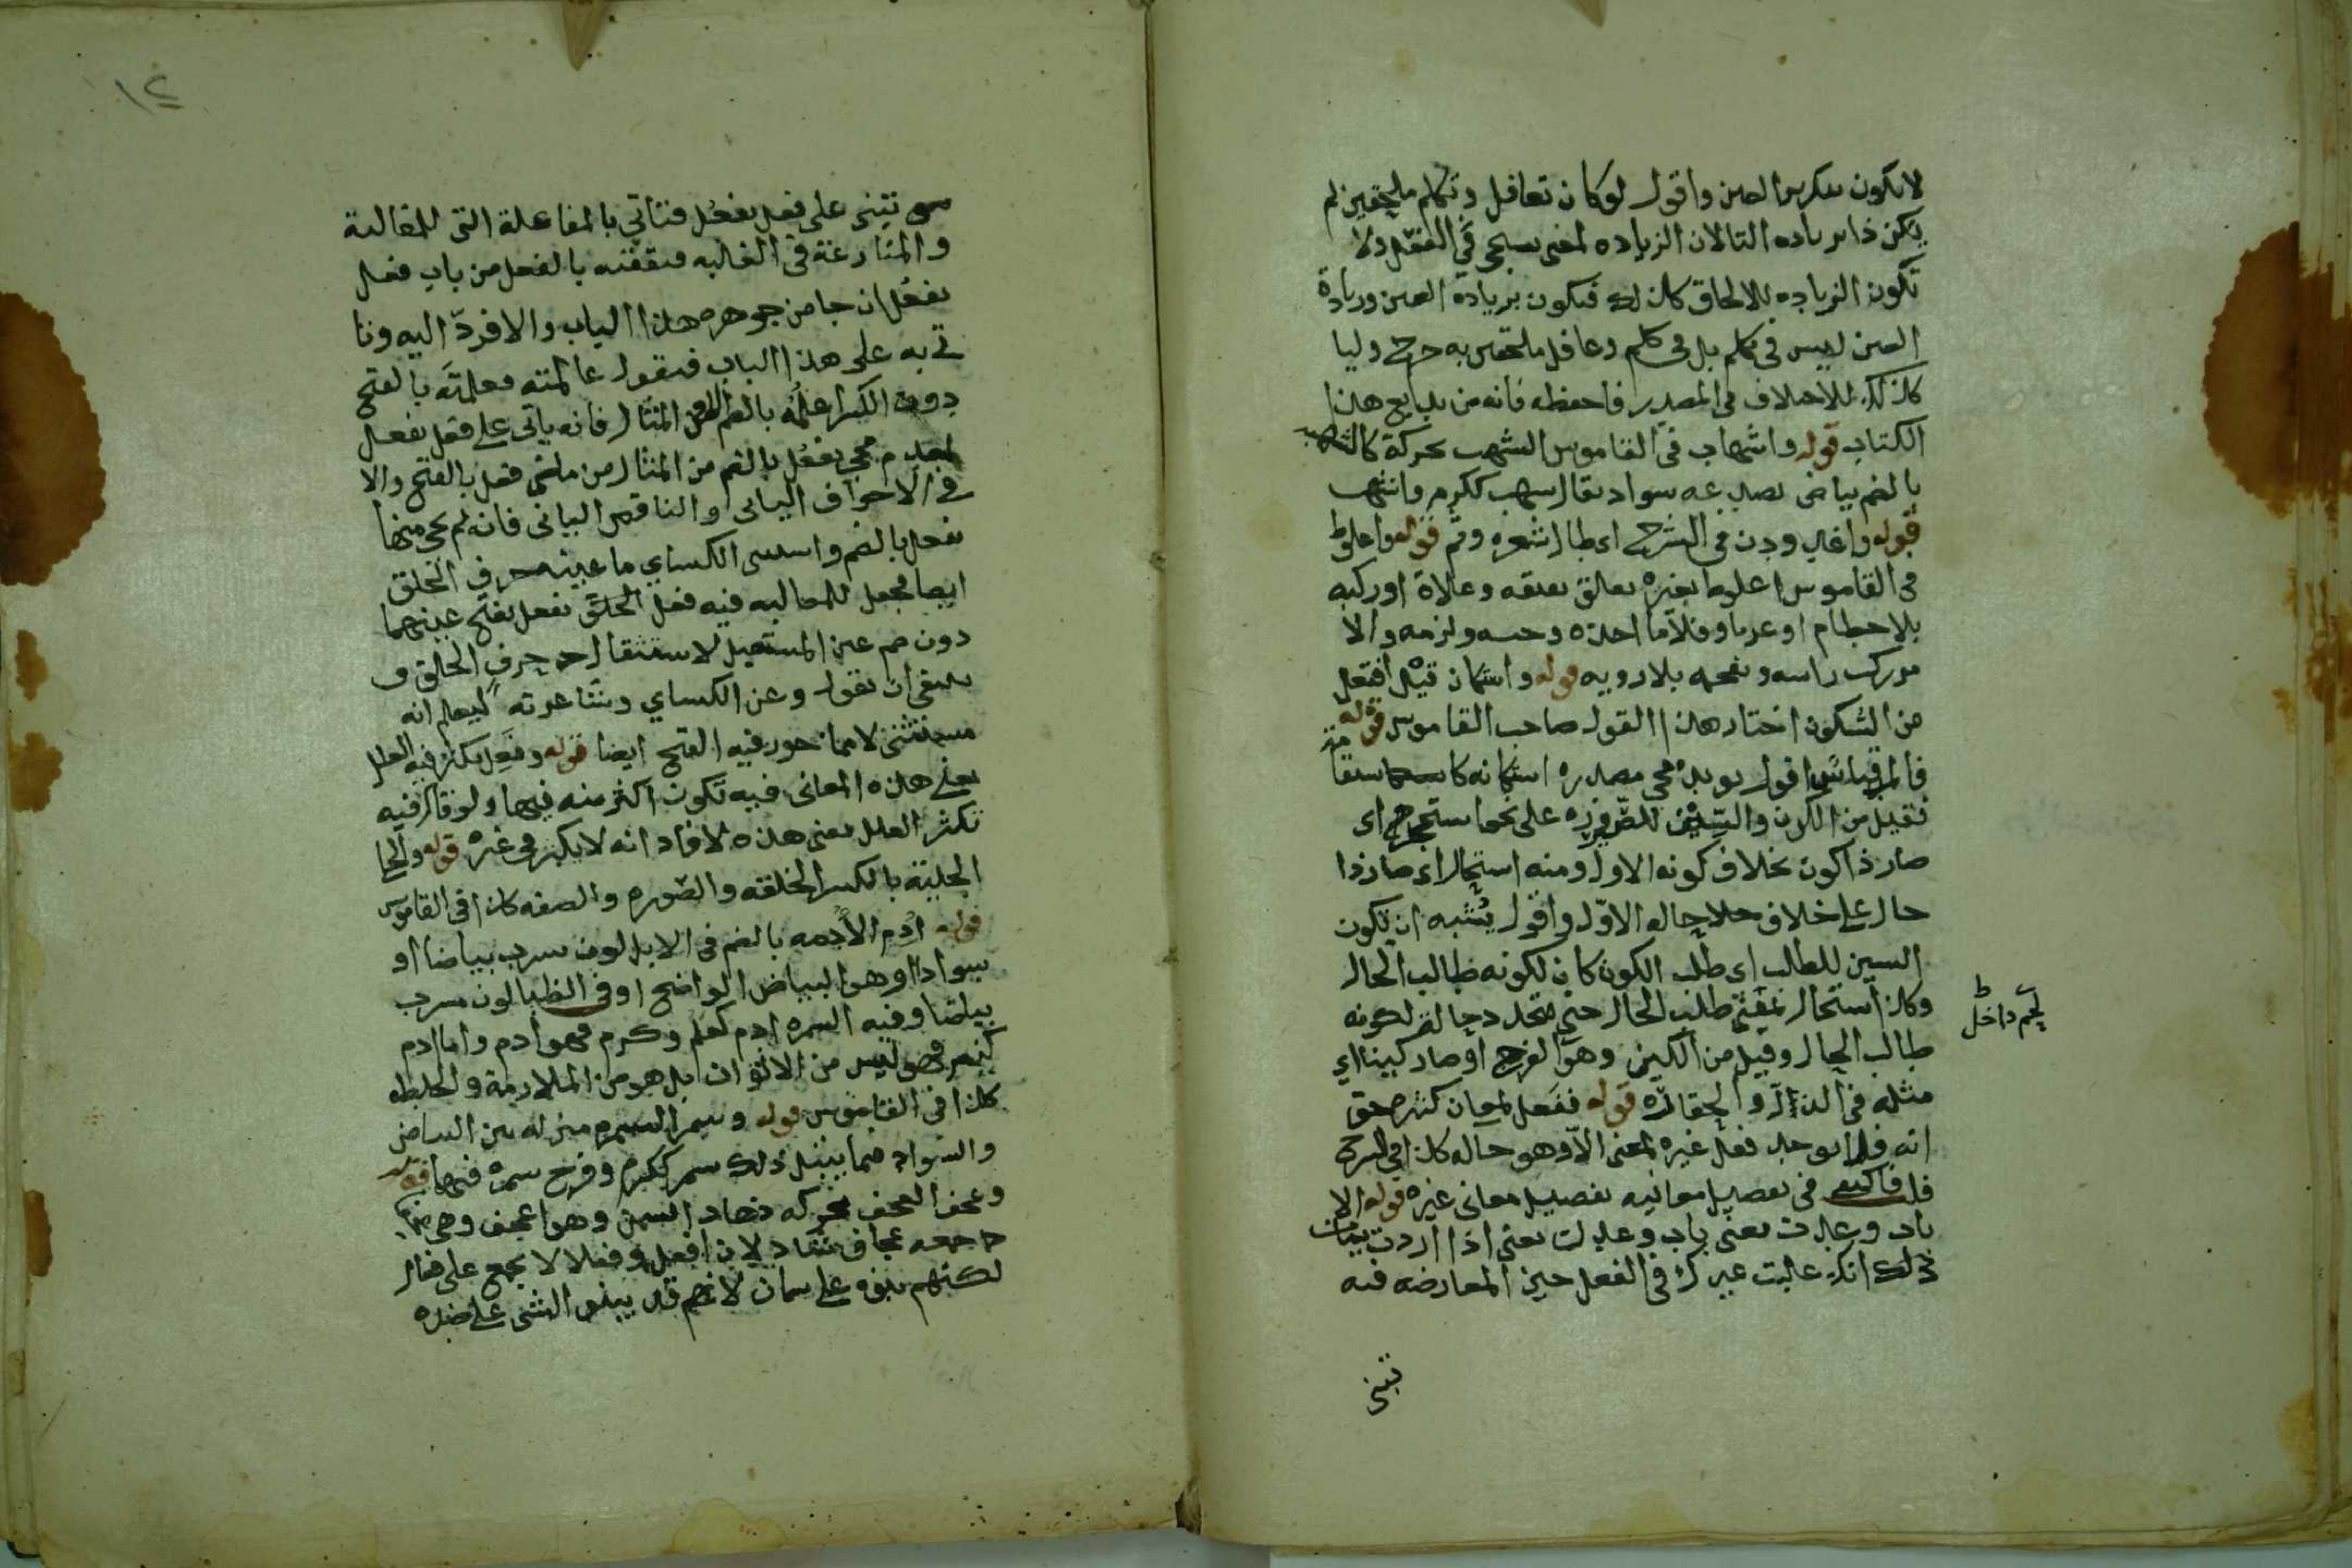 لا يكون بتكرير العين واقول لو كان تغافل وتكلم ملحقين لم
يكن ذا بزياده التا لان الزياده لمعنى سيجى في التفعل ولا
تكون الزياده للالحاق كذلك فيكون بزيادة العين وزيادة
العين ليس في تكلم بل في كلم وغافل ملحقين به دحرج وليسا
كذلك للاختلاف في المصدر فاحفظه فانه من بدايع هذا
الكتاب قوله واشهاب في القاموس الشهب محركة كالشهبه
بالضم بياض يصدعه سواد يقال شهب ككرم واشهب
قوله واغدودن في الشرح اى طال شعره وتم قوله واعلوط
في القاموس اعلوط بعيره تعلق بعنقه وعلاه او ركبه
بلا خطام او عريا وفلانا اخذه وحبسه ولزمه والا
مر ركب راسه وتقحمه بلا رويه قوله واستكان قيل افتعل
من السكون اختار هذا القول صاحب القاموس قوله
فالمد قياسى اقول يويده مجى مصدره استكانه
فقيل من الكون والسين للصيرورة على نحو استحجر اى
صار ذا كون بخلاف كونه الاول ومنه استحال اى صار ذا
حال على خلاف حاله الاول واقول يشبه ان تكون
السين للطلب اى طلب الكون كان لكونه طالب الحال
وكذا استحال بمعنى طلب الحال حتى تتجدد حاله لكونه
طالب الحال وقيل من الكين وهو الفرج او صار كينا اى
مثله في الذل والحقارة قوله ففعل لمعان كثيرة حق
انه فلا يوجد فعل غيره لمعنى الا وهو حاله كذا في الشرح
فلذا اكتفى في تفصيل معانيه بتفصيل معانى غيره قوله الا
باب وعدت يعنى باب وعدت يعنى اذا اردت بيان
ذلك انك غالبت غيرك في الفعل حين المعارضه فيه
تبنى
تتبنى على فعل يفعُل فتاتي بالمفاعلة التى للمغالبة
والمنازعة في الغالبه فتقفيه بالفعل من باب فعل
يفعُل ان جا من جوهره هذا الباب والا فردّ اليه وتا
تى به على هذا الباب فتقول عالمته فعلمتَه بالفتح
دون الكسر اعلُمُه بالضم الا في المثال فانه ياتى على فعل يفعل
لعدم مجى يفعُل بالضم من المثال من ماضى فعل بالفتح والا
في الاجوف اليائى والناقص اليائى فانه لم يجى منهما
يفعل بالضم واستثنى الكساي ما عينه حرف الحلق
ايضا فجعل للمغالبه فيه فعل الحلق يفعل بفتح عينهما
دون ضم عين المستقبل لاستثقال حرف الحلق و
ينبغى ان تقول وعن الكساي وشاعرته ليعلم انه
مستثنى لا مما يجوز فيه الفتح ايضا قوله وفعِل يكثر فيه العلل
يعنى هذه المعانى فيه تكون اكثر منه فيها ولو قال فيه
تكثر العلل يعنى هذه لافاد انه لا يكثر في غيره قوله والحلى
الحلية بالكسر الخلقه والصوره والصفه كذا في القاموس
قوله ادم الأدمه بالضم في الابل لون مشرب بياضا او
سوادا او هى البياض الواضح او في الظبا لون مشرب
بياضا وفيه السمره ادم كعلم وكرم فهو ادم واما ادم
كنصر فهى ليس من الالوان بل هو من الملازمة والخلطه
كذا في القاموس قوله وسمر السمره منزله بين البياض
والسواد فيما يقبل ذلك سمر ككرم وفرح سمرة فيهما قوله
وعجف العجف محركه ذهاب السمن وهو اعجف وهى
ج جمعه عجاف شاذ لان افعل وفعلا لا يجمع على فعال
لكنهم بنوه على سمان لانهم قد يبنون الشى على ضده
١٢